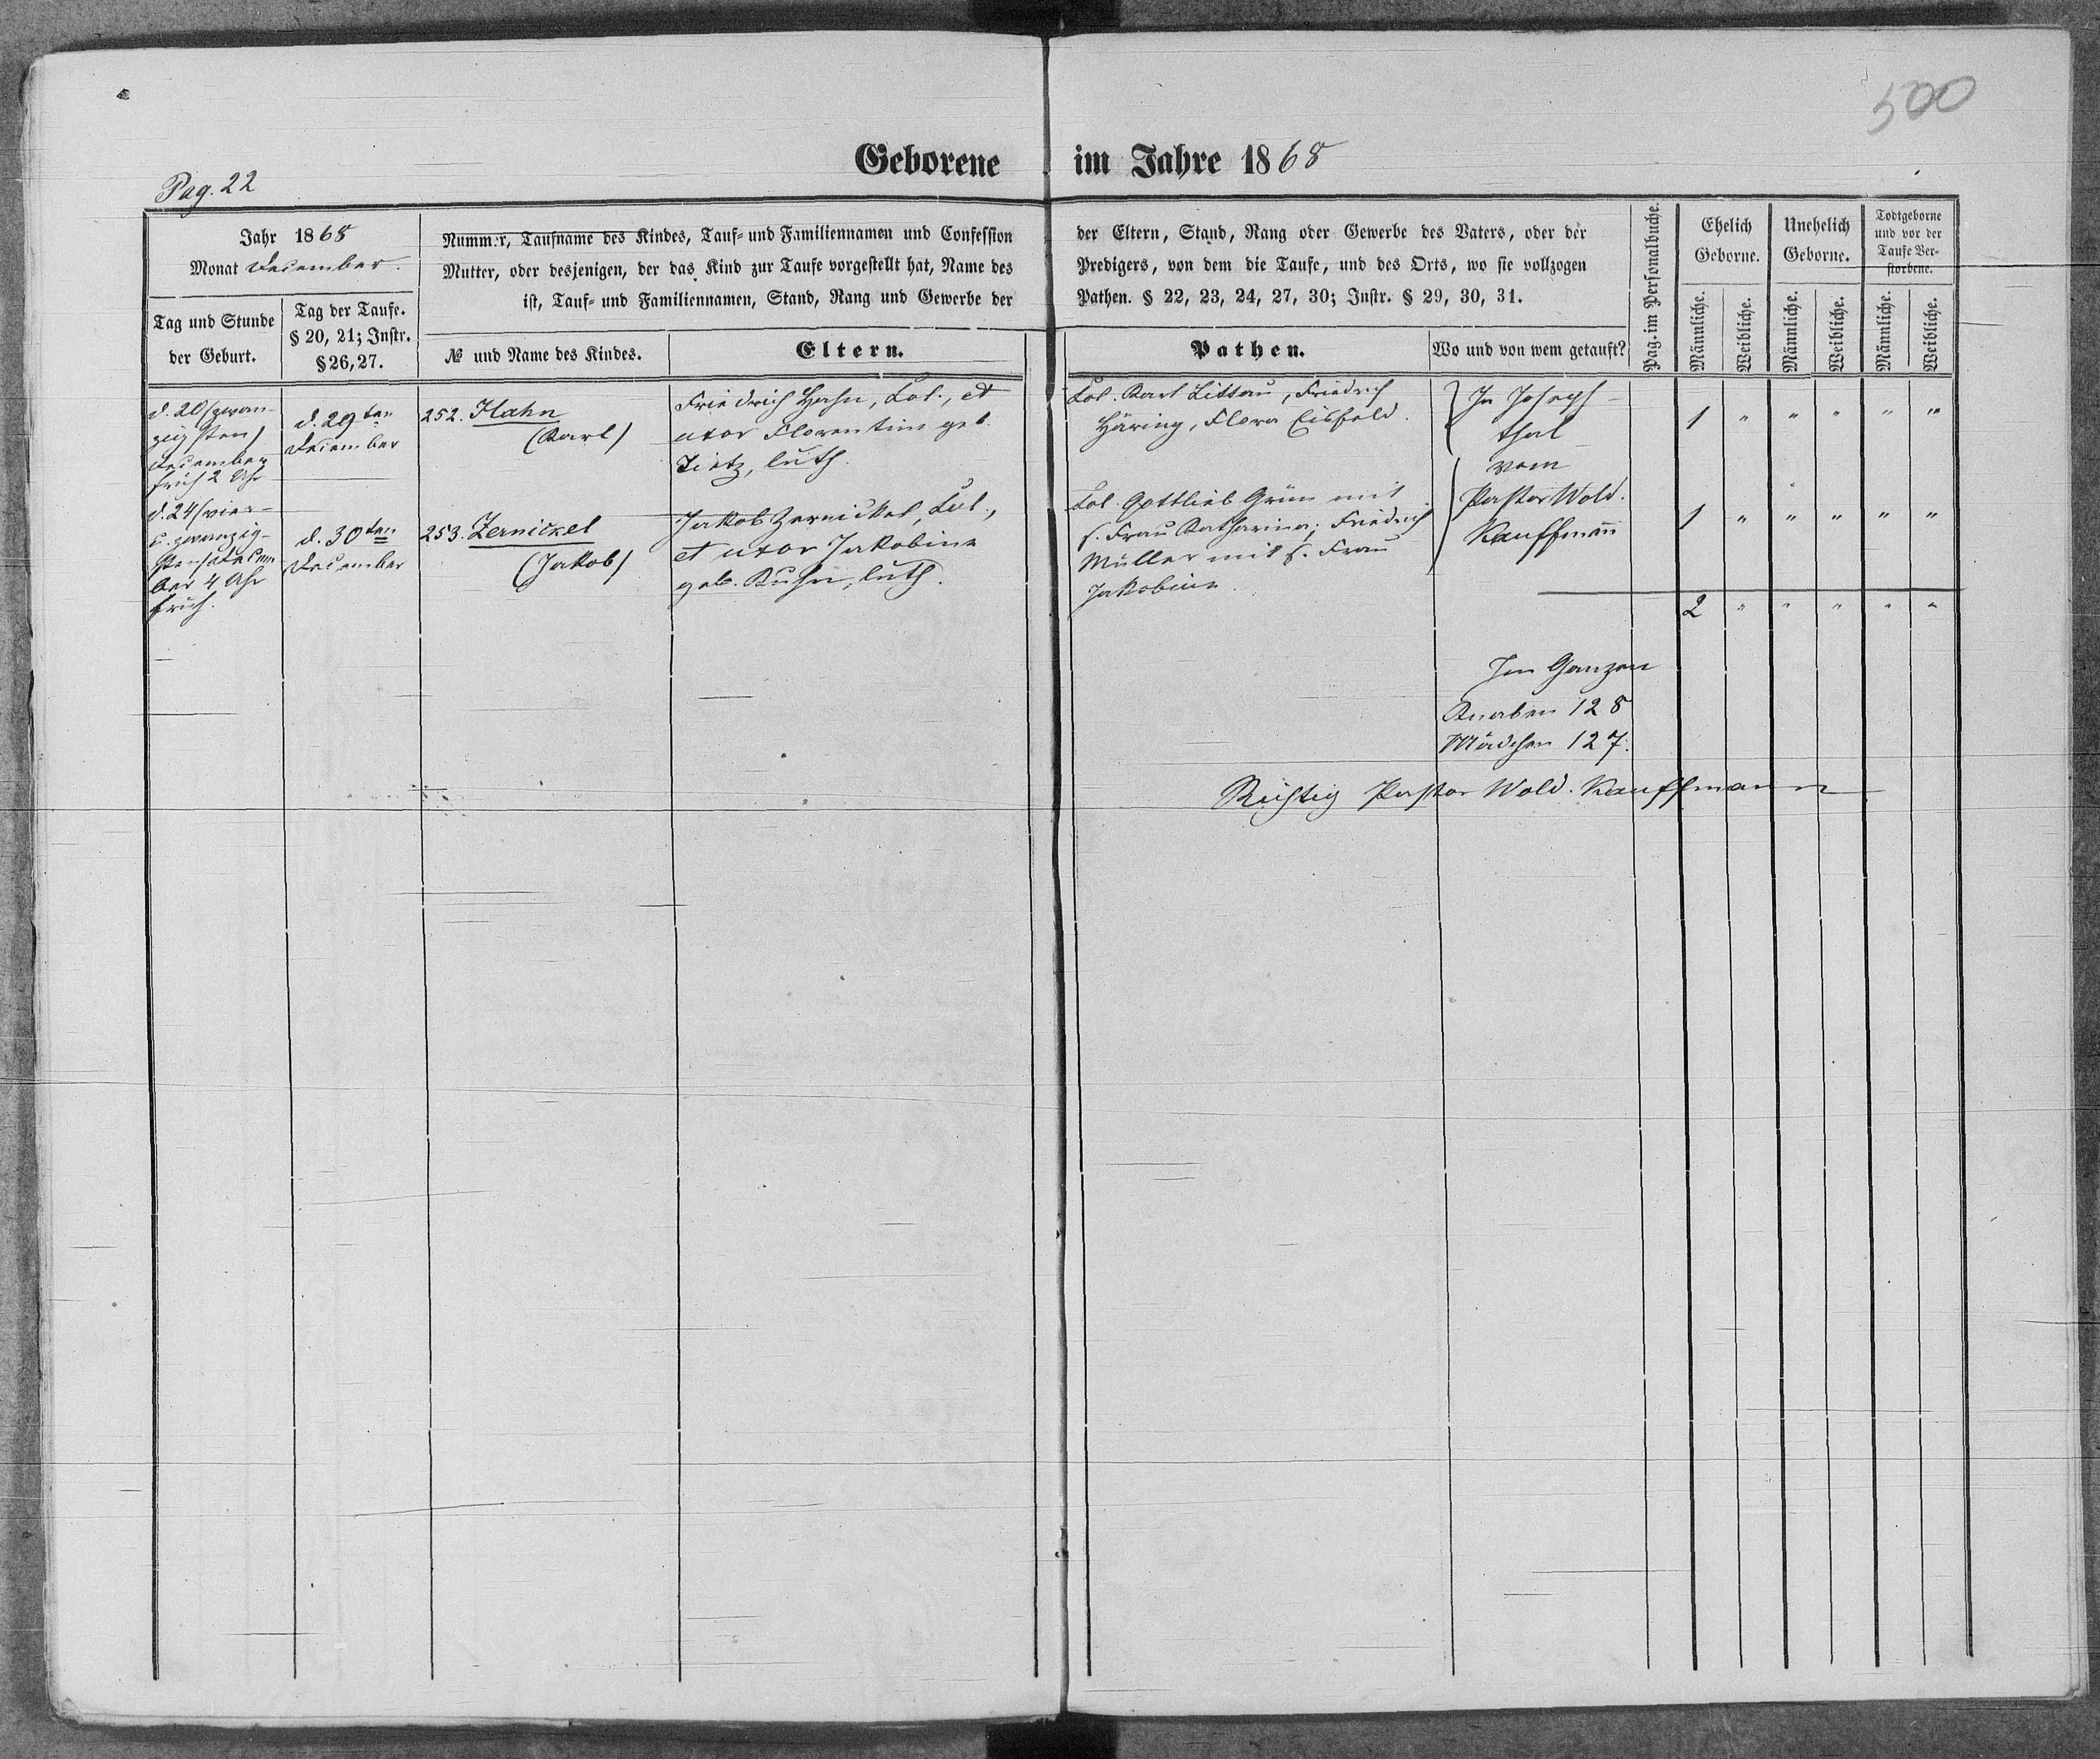 500
Geborene im Jahre 1868
Pag. 22
Jahr 1868
Monat December.
Tag und Stunde
der Geburt.
Tag der Taufe.
§ 20, 21; Instr.
§ 26, 27.
Nummer, Taufname des Kindes, Tauf= und Familiennamen und Confession
Mutter, oder desjenigen, der das Kind zur Taufe vorgestellt hat, Name des
ist, Tauf= und Familiennamen, Stand, Rang und Gewerbe der
№ und Name des Kindes.
Eltern.
der Eltern, Stand, Rang oder Gewerbe des Vaters, oder der
Predigers, von dem die Taufe, und des Orts, wo sie vollzogen
Pathen. § 22, 23, 24, 27, 30; Instr. § 29, 30, 31.
Pathen.
Wo und von wem getauft?
Pag. im Personalbuche.
Ehelich
Geborne.
Unehelich
Geborne.
Todtgeborne
und vor der
Taufe Ver-
storbene.
Männliche.
Weibliche.
Männliche.
Weibliche.
Männliche.
Weibliche.
d. 20 (zwan-
zigsten)
December
früh 2 Uhr
d. 29ten
December
252. Hahn
(Karl)
Friedrich Hahn, Col., et
uxor Florentine geb.
Tietz, luth.
Col. Karl Littau, Friedrich
Häring, Flora Eisfeld.
In Joseph-
thal
vom
Pastor Wold.
Kauffmann
1 " " " " "
d. 24 (vier-
u. zwanzig-
sten) Decem
ber 4 Uhr
früh.
d. 30ten
December
253. Zernickel
(Jakob)
Jakob Zernickel, Col.,
et uxor Jakobine
geb. Kuhn, luth.
Col. Gottlieb Grün mit
s. Frau Katharina; Friedrich
Müller mit s. Frau
Jakobine
1 " " " " "
2 " " " " "
Im Ganzen
Knaben 128
Mädchen 127.
Richtig Pastor Wold. Kauffmann